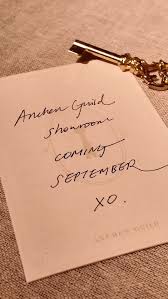 Archer Guild
Showroom
COMING
SEPTEMBER
XO.